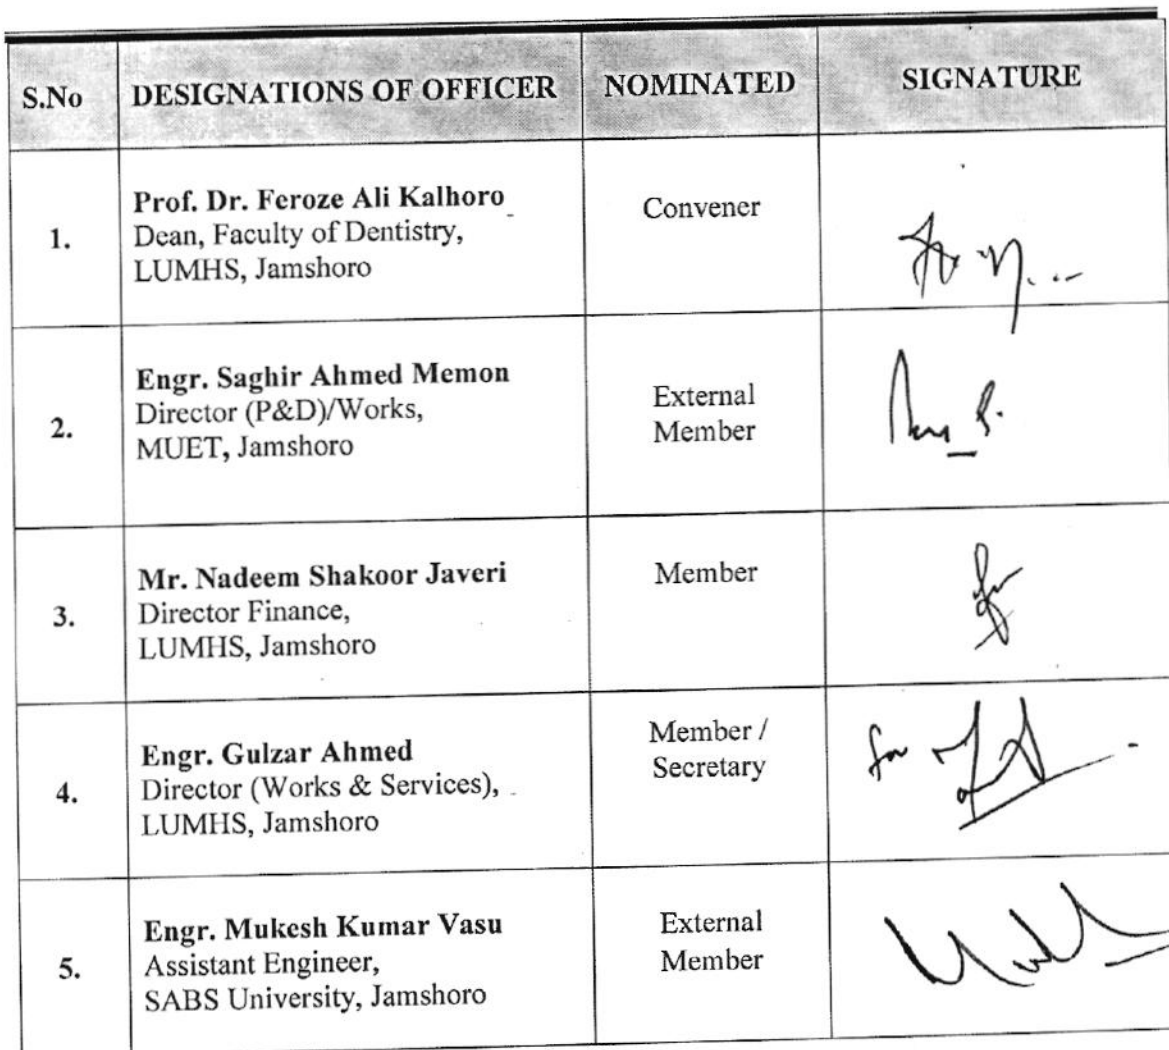 S.No DESIGNATIONS OF OFFICER NOMINATED SIGNATURE
1.
Prof. Dr. Feroze Ali Kalhoro
Dean, Faculty of Dentistry,
LUMHS, Jamshoro
Convener
2.
Engr. Saghir Ahmed Memon
Director (P&D)/Works,
MUET, Jamshoro
External
Member
3.
Mr. Nadeem Shakoor Javeri
Director Finance,
LUMHS, Jamshoro
Member
4.
Engr. Gulzar Ahmed
Director (Works & Services),
LUMHS, Jamshoro
Member /
Secretary
for
5.
Engr. Mukesh Kumar Vasu
Assistant Engineer,
SABS University, Jamshoro
External
Member